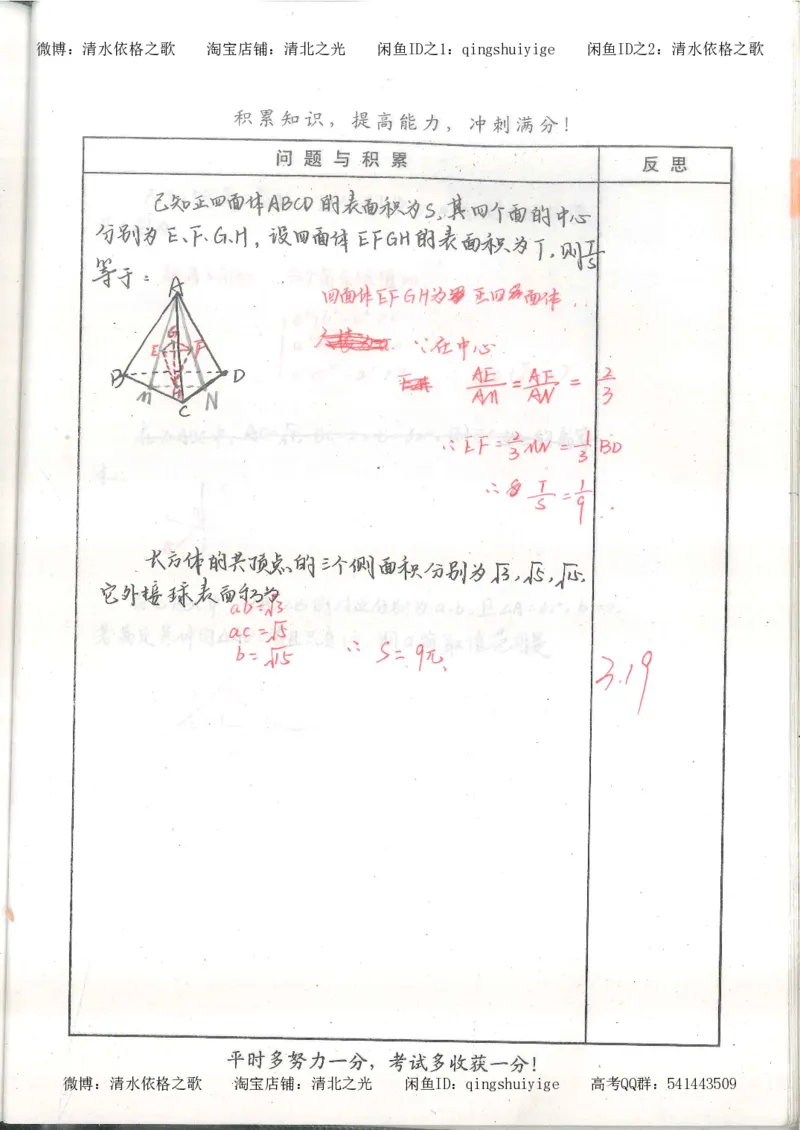 微博：清水依格之歌 淘宝店铺：清北之光 闲鱼ID之1：qingshuiyige 闲鱼ID之2：清水依格之歌
积累知识，提高能力，冲刺满分！
问题与积累 反思
已知正四面体ABCD的表面积为S,其四个面的中心
分别为E、F、G、H，设四面体EFGH的表面积为T,则T/S
等于：
A
四面体EFGH为正四面体.
G
E F
∵在中心
B D
M N
C
AE/AM=AF/AN=2/3
∴EF=2/3MN=1/3BD
∴T/S=1/9.
长方体的共顶点的三个侧面积分别为√3,√5,√15,
它外接球表面积为
ab=√3
ac=√5
b=√15 ∴ S=9π.
3.19
平时多努力一分，考试多收获一分!
微博：清水依格之歌 淘宝店铺：清北之光 闲鱼ID：qingshuiyige 高考QQ群：541443509